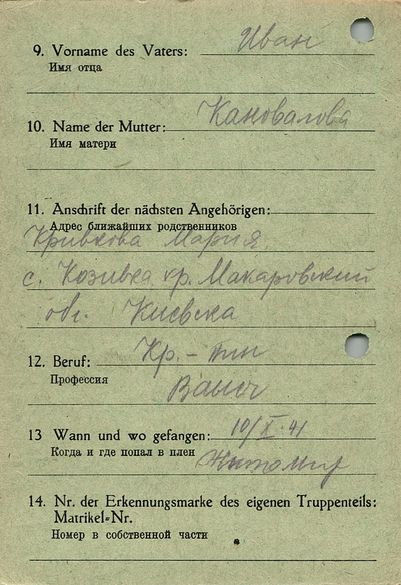 9. Vorname des Vaters: Иван
Имя отца
10. Name der Mutter: Кановалова
Имя матери
11. Anschrift der nächsten Angehörigen:
Адрес ближайших родственников
Кривкова Мария
с. Козивка кр. Макаровский
обл. Киевска
12. Beruf: Кр. -
Профессия
13 Wann und wo gefangen: 10/X. 41
Когда и где попал в плен Житомир
14. Nr. der Erkennungsmarke des eigenen Truppenteils:
Matrikel=Nr.
Номер в собственной части